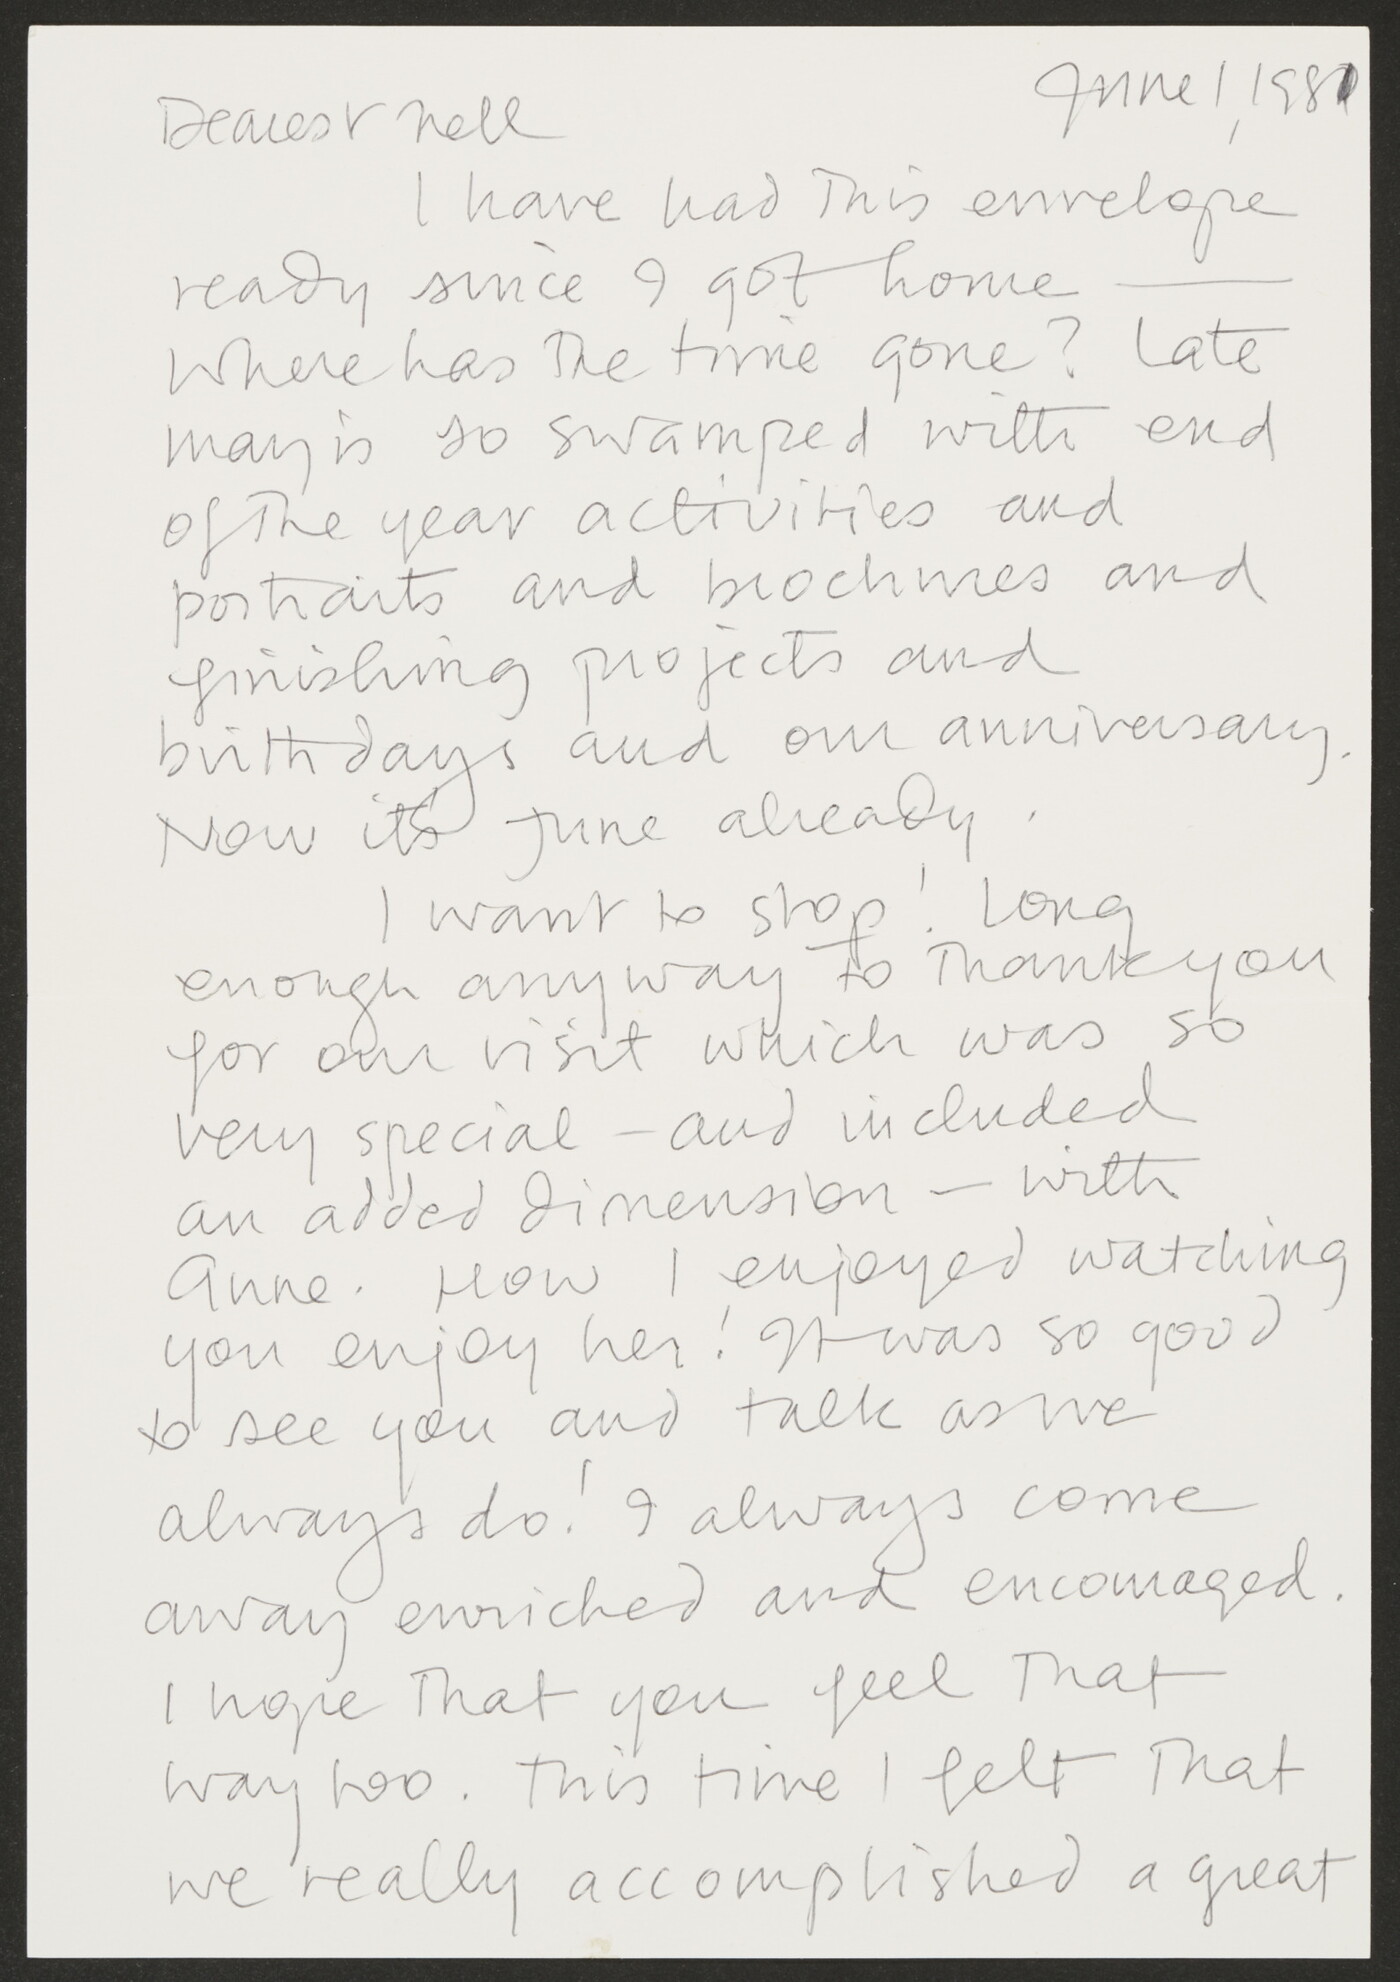 June 1, 1981
Dearest Nell
I have had this envelope
ready since I got home —
Where has the time gone? Late
may is so swamped with end
of the year activities and
portraits and brochures and
finishing projects and
birthdays and our anniversary.
Now it's June already.
I want to stop! Long
enough anyway to thank you
for our visit which was so
very special – and included
an added dimension – with
Anne. How I enjoyed watching
you enjoy her! It was so good
to see you and talk as we
always do! I always come
away enriched and encouraged.
I hope that you feel that
way too. This time I felt that
we really accomplished a great